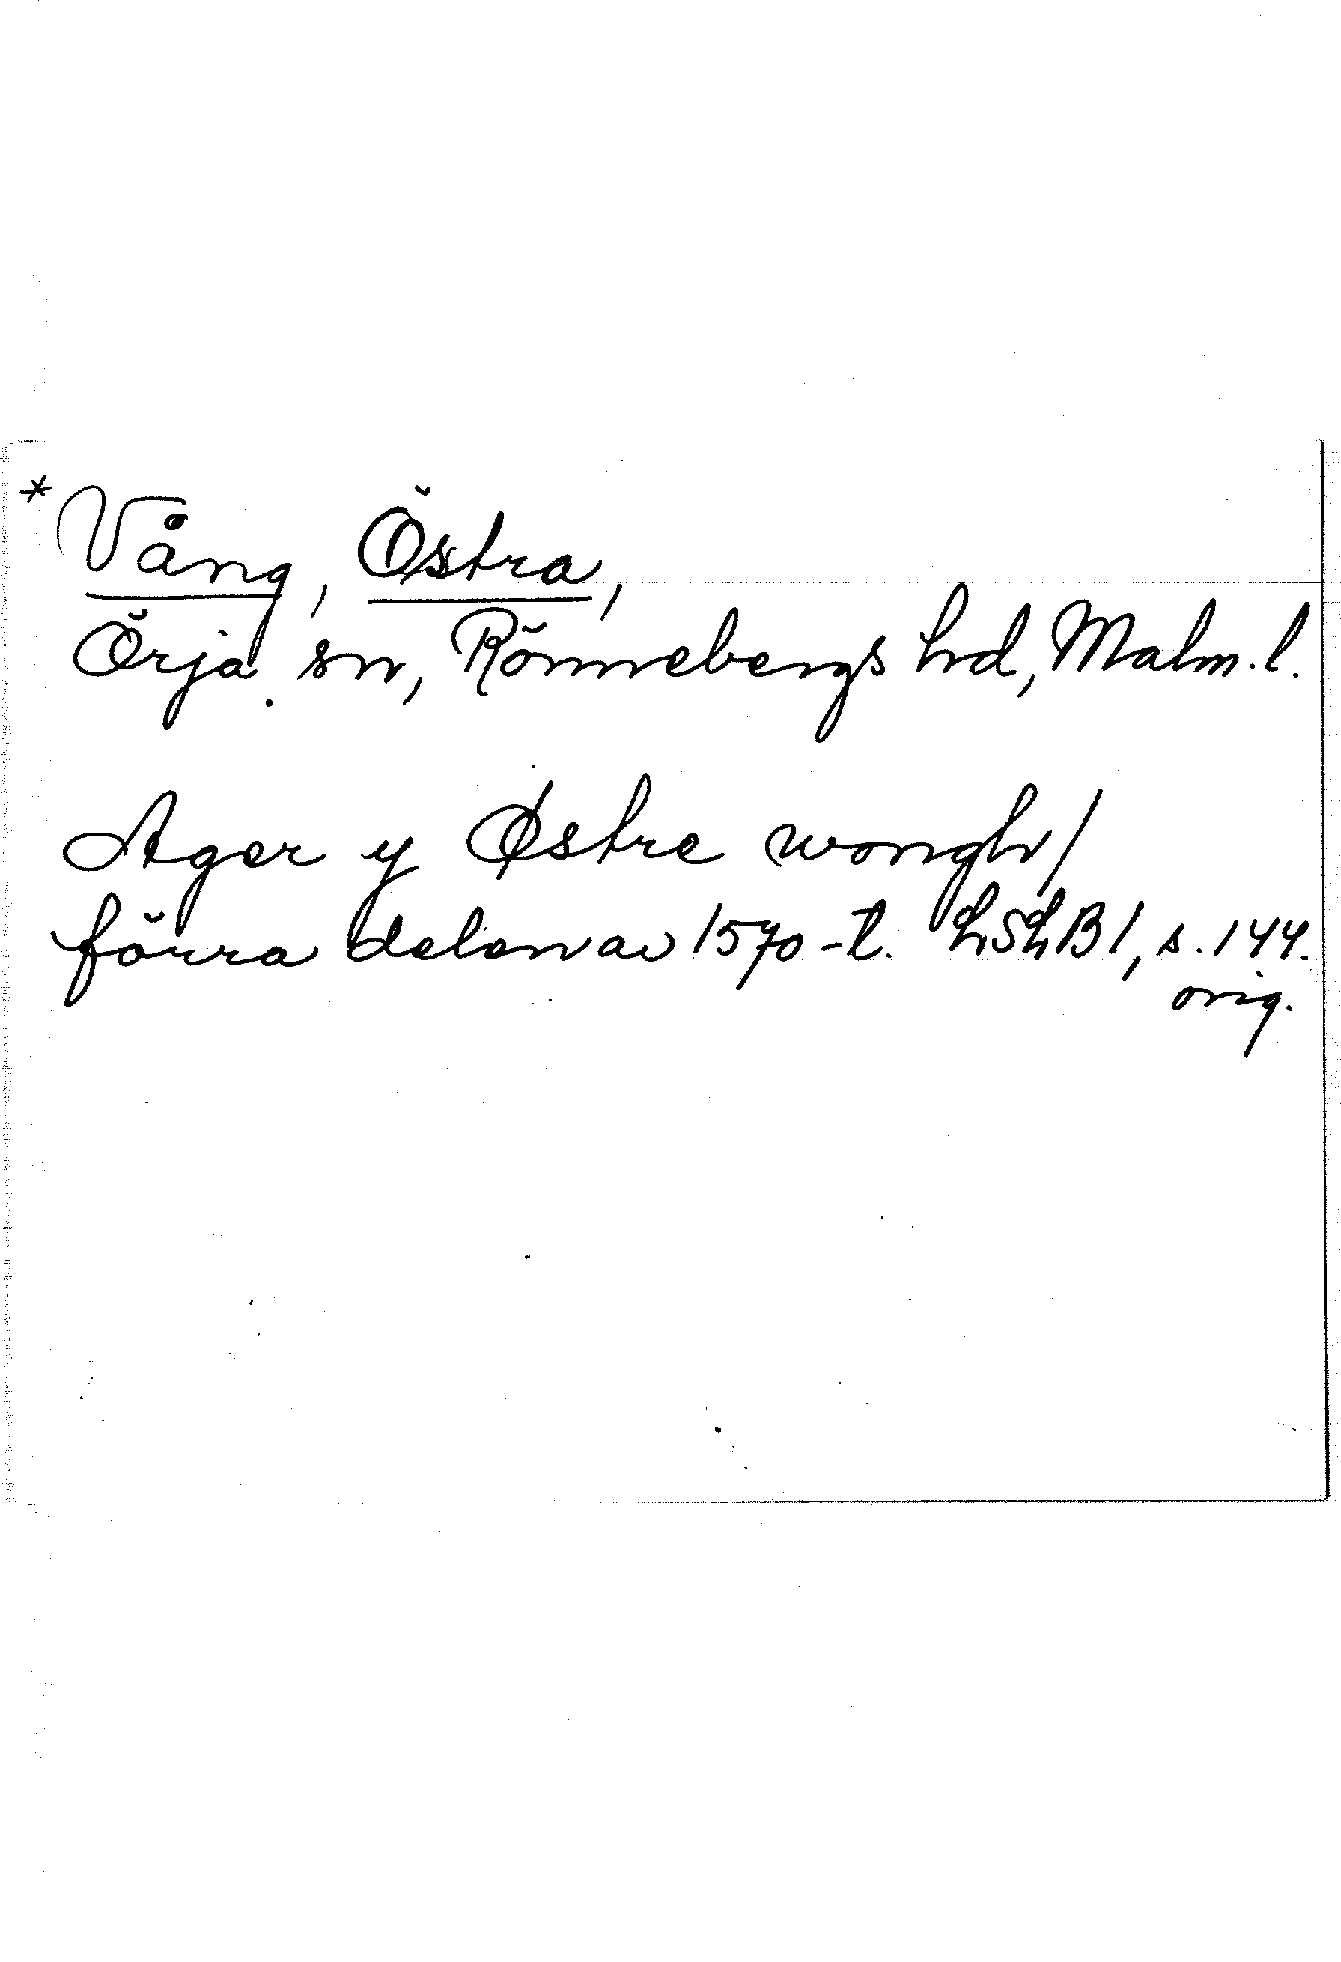 * Vång, Östra,
Örja sn, Rönnebergs hrd, Malm. l.
Ager y Østre wongh/
förra delen av 1570-t. LSLB 1, s. 144.
orig.